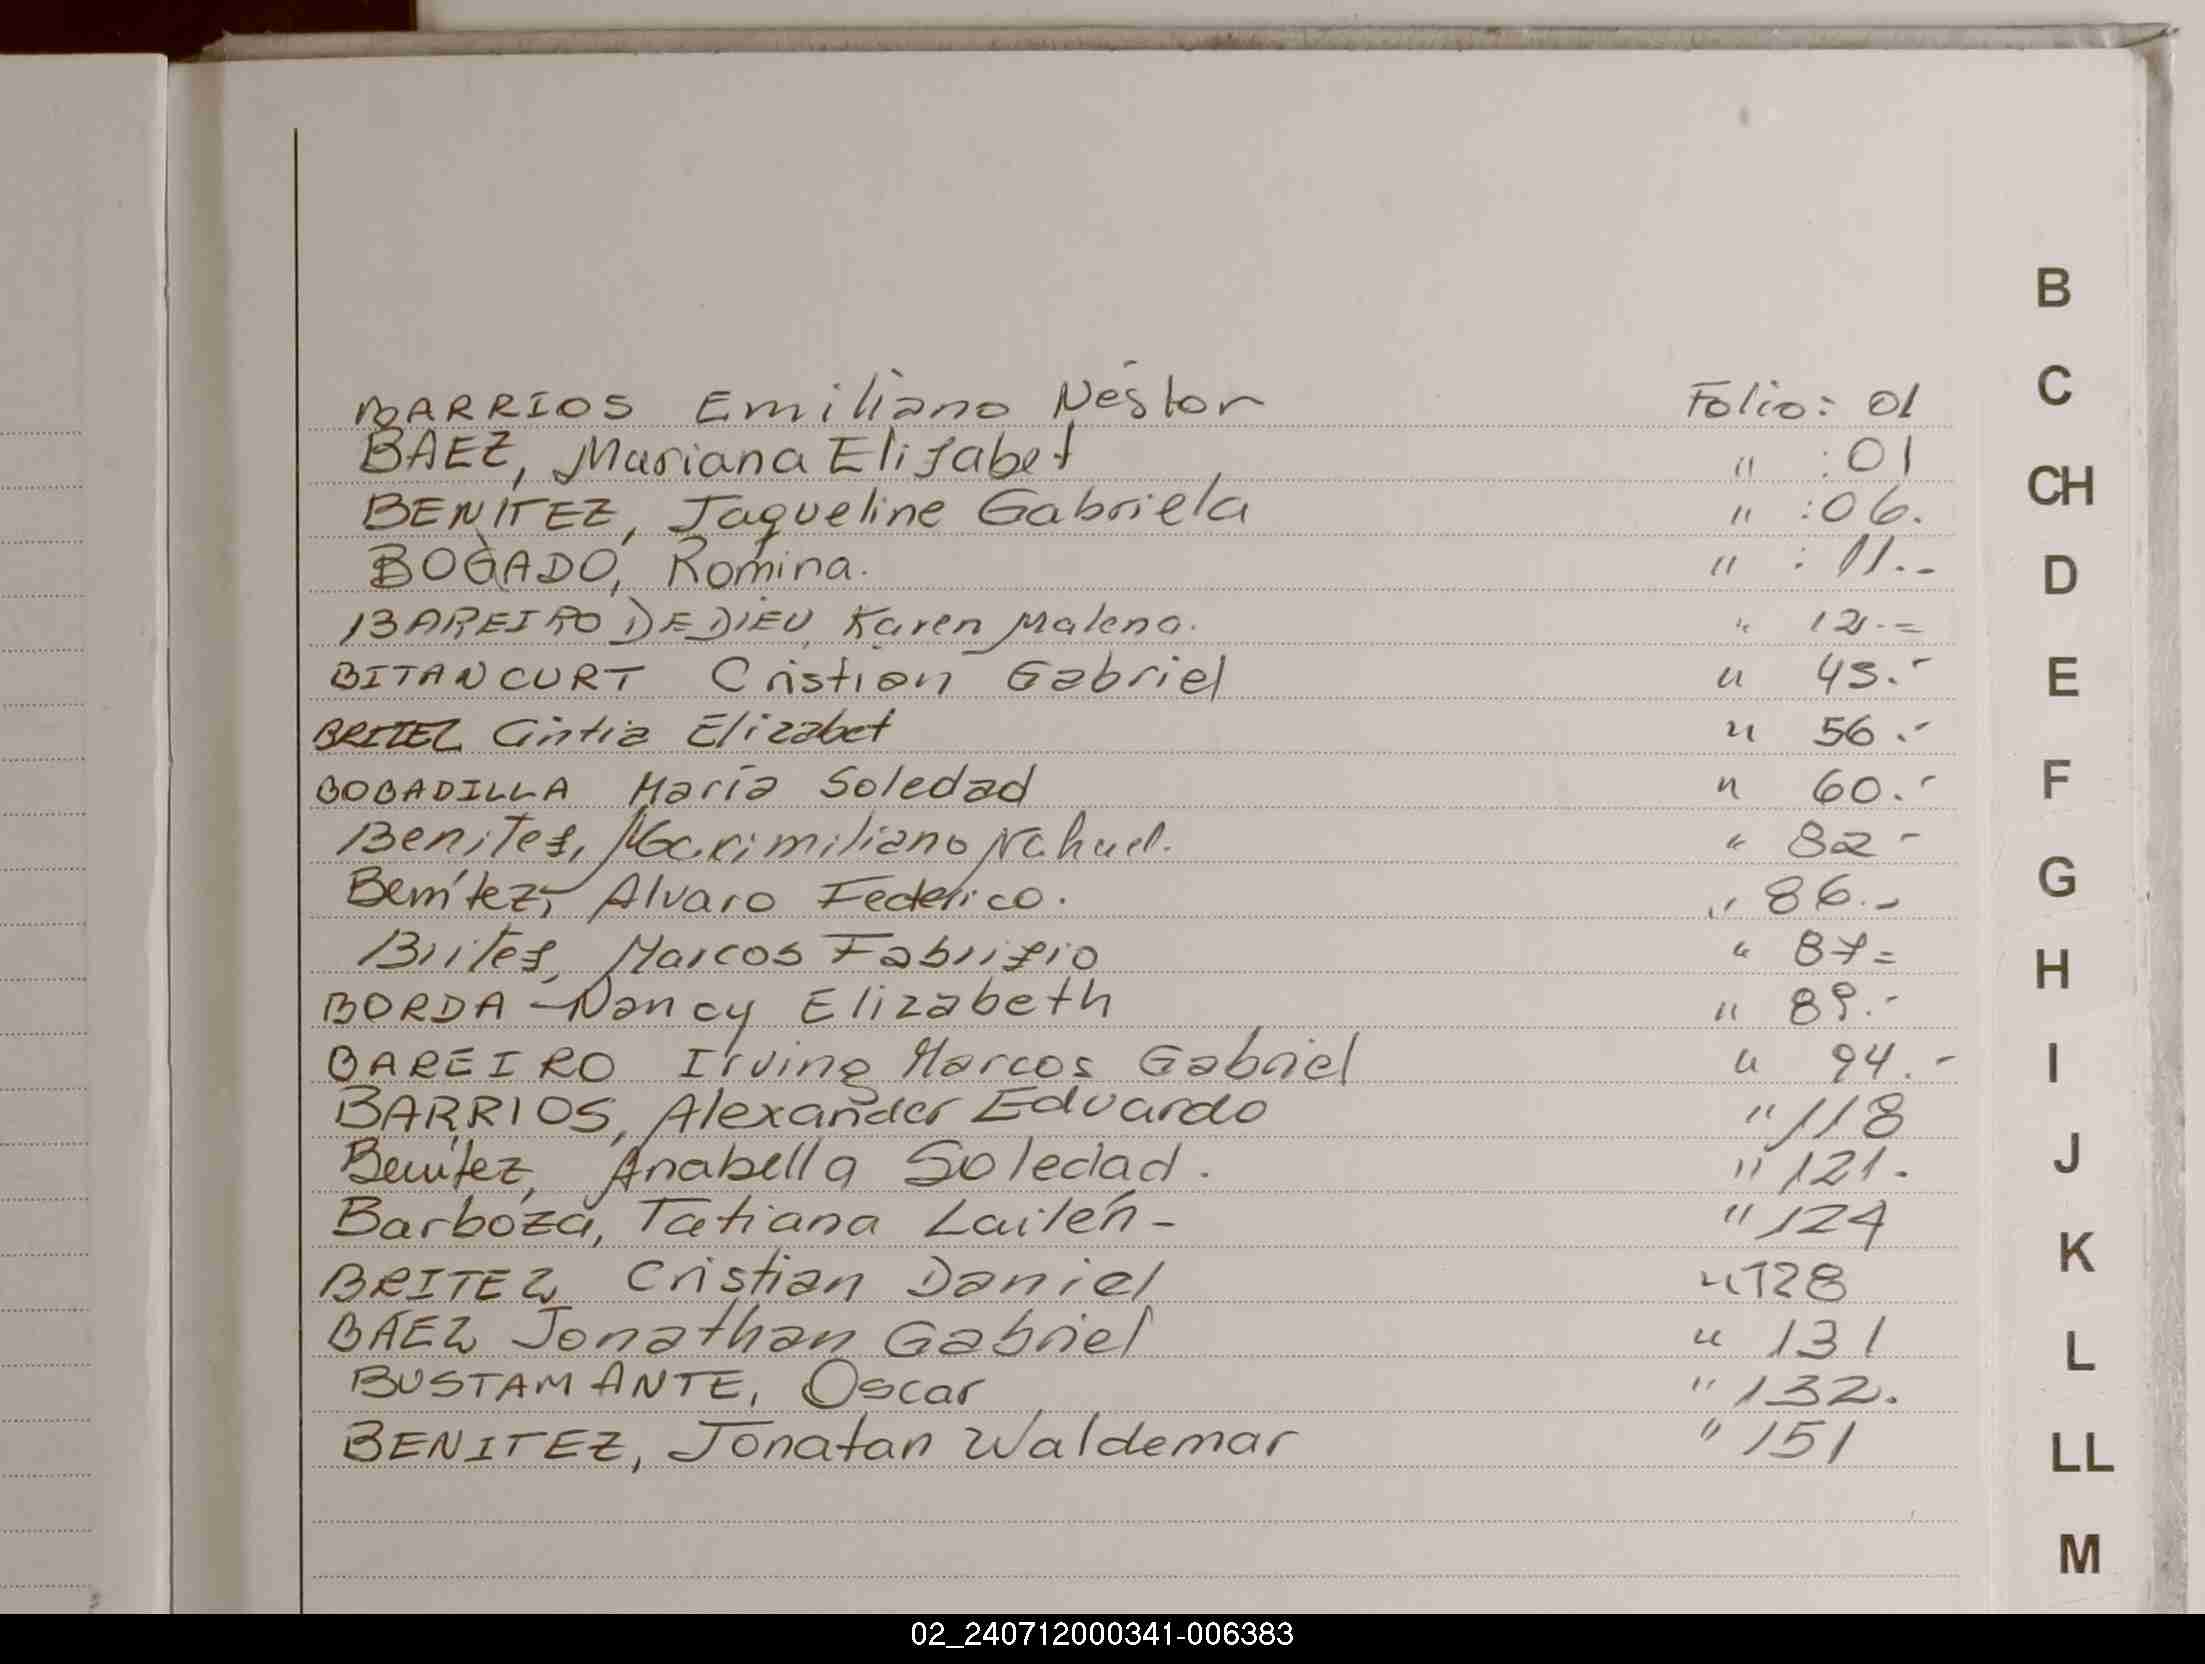 BARRIOS Emiliano Néstor Folio: 01
BAEZ, Mariana Elisabet " :01
BENITEZ, Jaqueline Gabriela " :06.
BOGADO, Romina. " : 11.-
BAREIRO DEDIEU, Karen Malena. " 12.=
BITANCURT Cristian Gabriel " 45.-
BRITEZ Cintia Elizabet " 56.-
BOBADILLA María Soledad " 60.-
Benites, Maximiliano Nahuel. " 82-
Benítez, Alvaro Federico. " 86.-
Brites, Marcos Fabrizio " 87=
BORDA - Nancy Elizabeth " 89.-
BAREIRO Irving Marcos Gabriel " 94.-
BARRIOS, Alexander Eduardo " 118
Benítez, Anabella Soledad. " 121.
Barboza, Tatiana Lailén - " 124
BRITEZ Cristian Daniel " 128
BÁEZ Jonathan Gabriel " 131
BUSTAMANTE, Oscar " 132.
BENITEZ, Jonatan Waldemar " 151
B
C
CH
D
E
F
G
H
I
J
K
L
LL
M
02_240712000341-006383